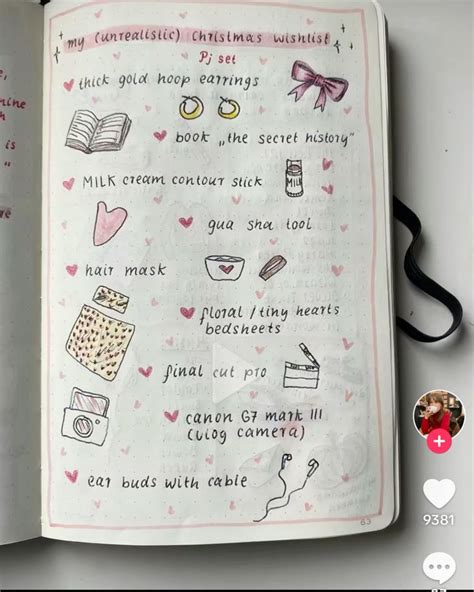 my (unrealistic) christmas wishlist
Pj set
thick gold hoop earrings
book „the secret history"
MILK cream contour stick
MILK
gua sha tool
hair mask
floral / tiny hearts
bedsheets
final cut pro
canon G7 mark III
(vlog camera)
ear buds with cable
63
9381